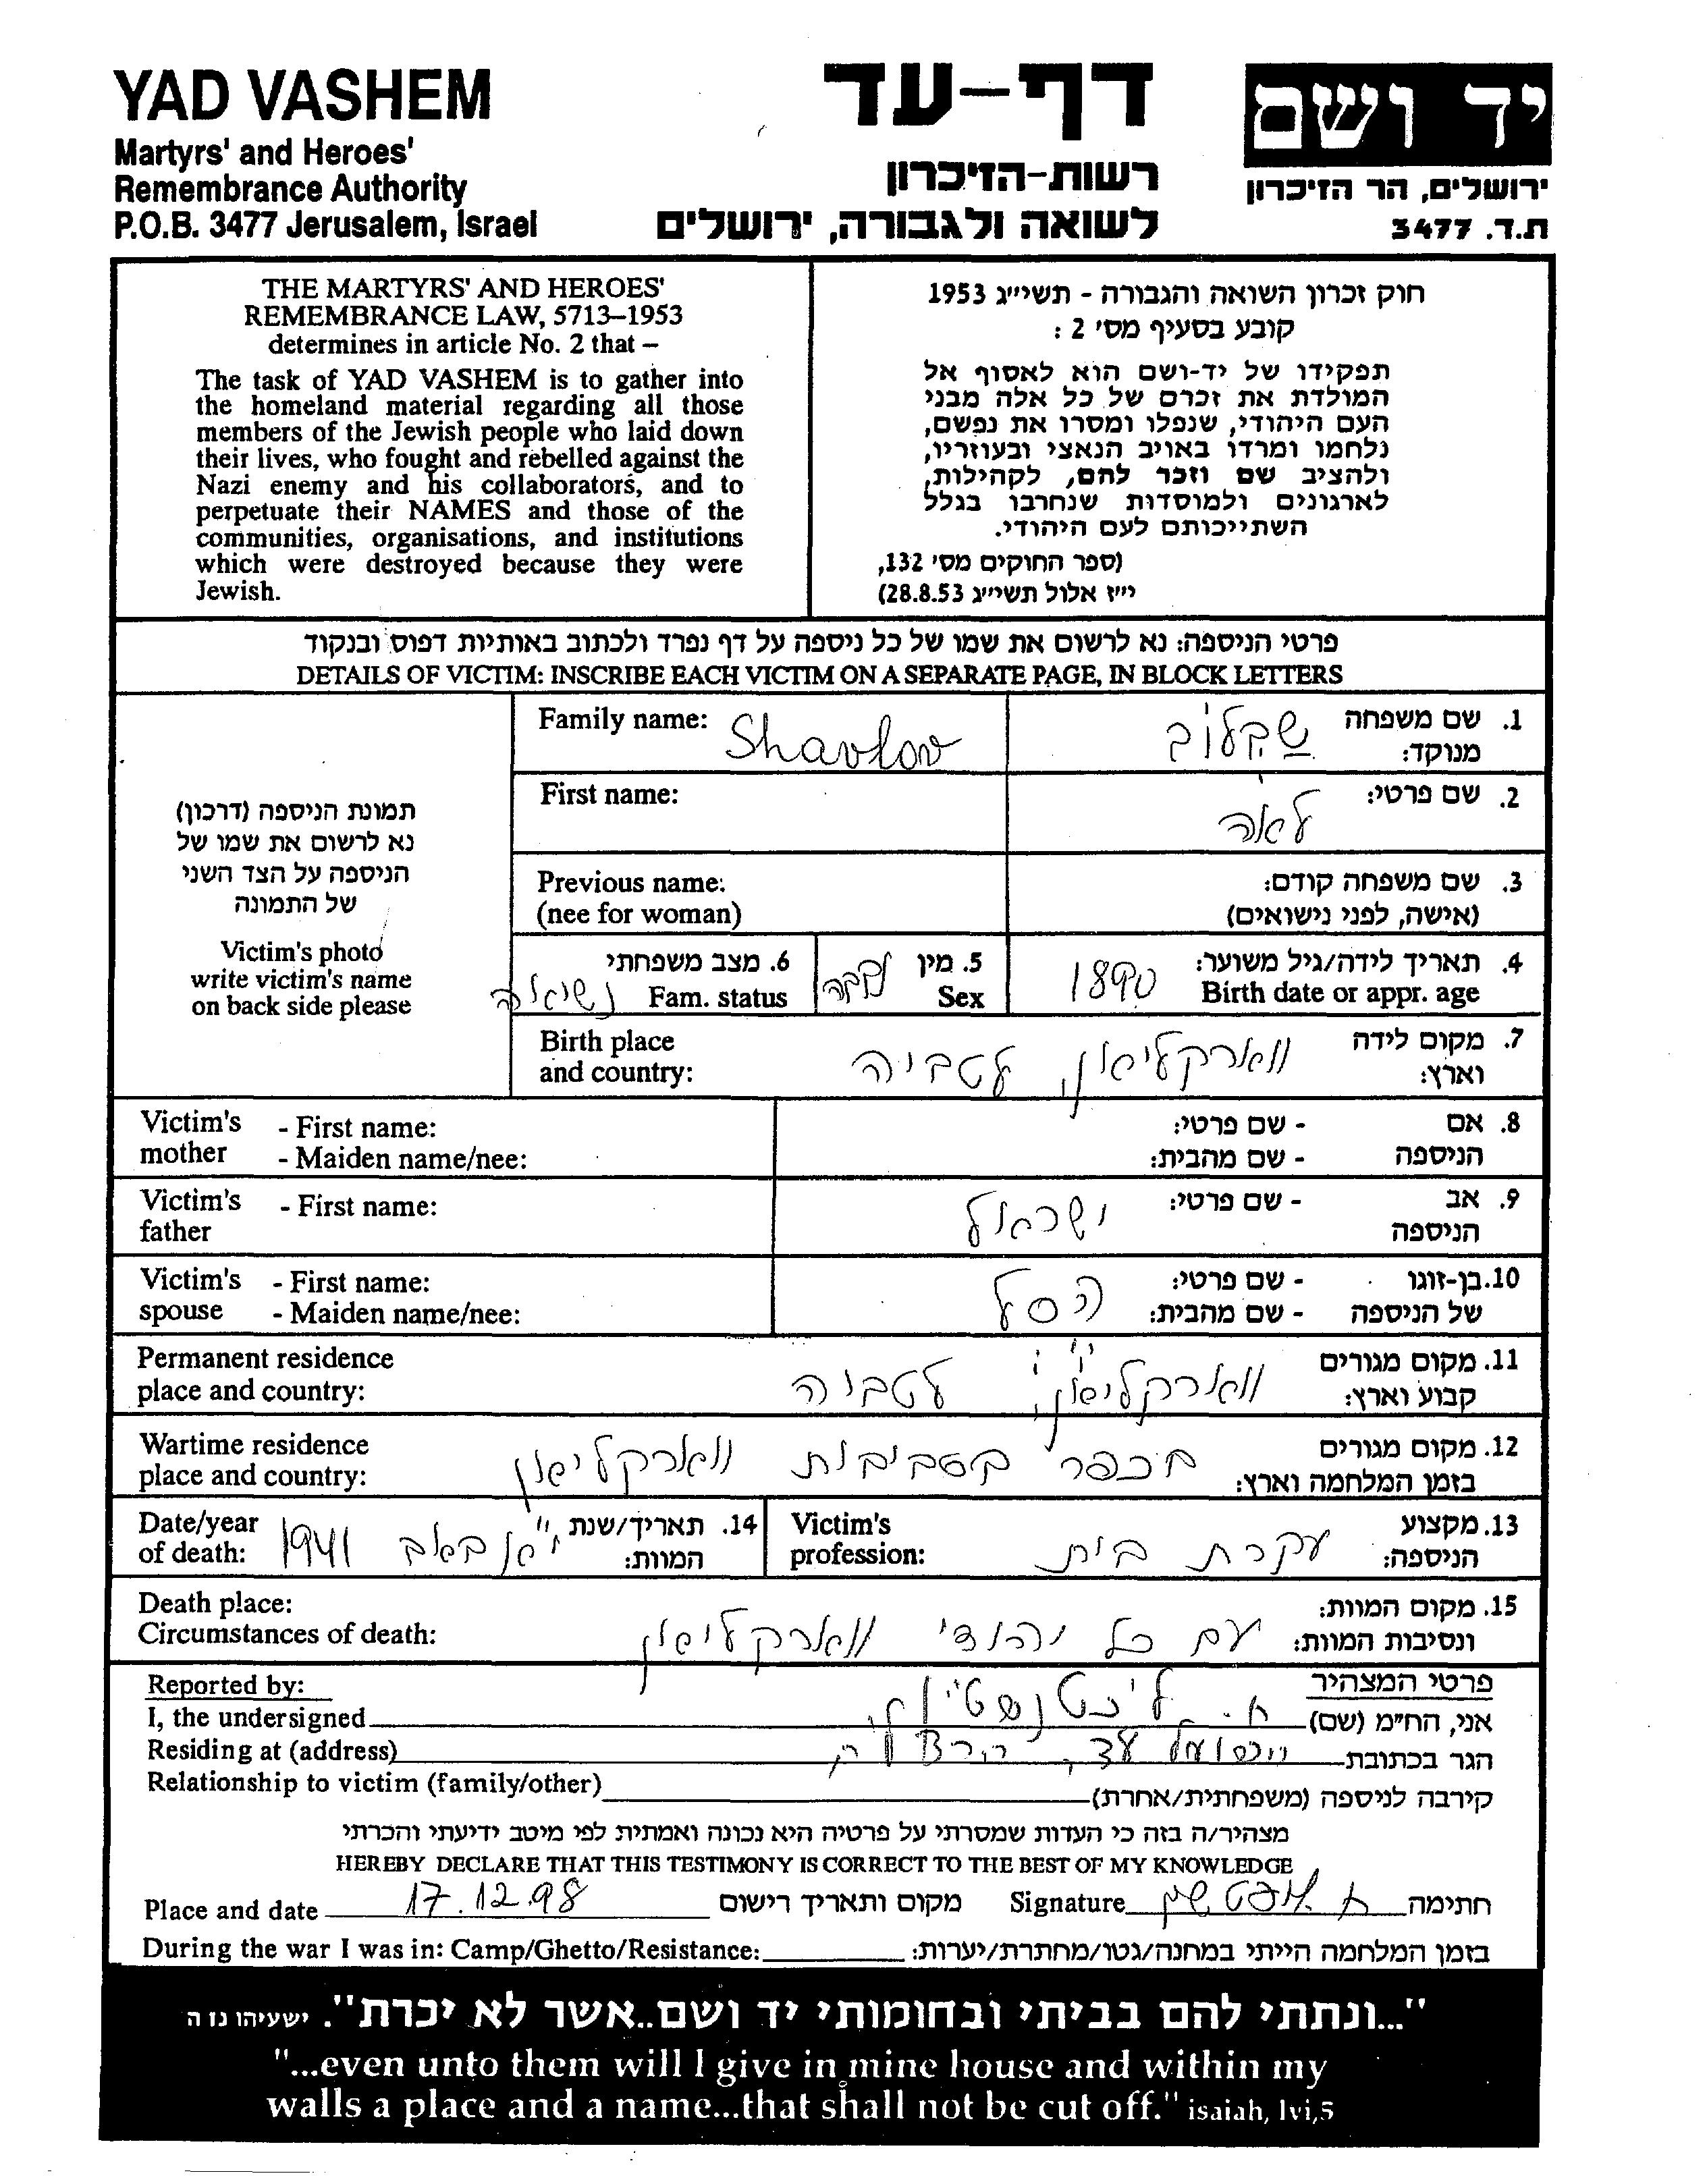 YAD VASHEM
Martyrs' and Heroes'
Remembrance Authority
P.O.B. 3477 Jerusalem, Israel
דף-עד
רשות-הזיכרון
לשואה ולגבורה, ירושלים
יד ושם
ירושלים, הר הזיכרון
ת.ד. 3477
THE MARTYRS' AND HEROES'
REMEMBRANCE LAW, 5713–1953
determines in article No. 2 that –
The task of YAD VASHEM is to gather into
the homeland material regarding all those
members of the Jewish people who laid down
their lives, who fought and rebelled against the
Nazi enemy and his collaborators, and to
perpetuate their NAMES and those of the
communities, organisations, and institutions
which were destroyed because they were
Jewish.
חוק זכרון השואה והגבורה - תשי״ג 1953
קובע בסעיף מס׳ 2 :
תפקידו של יד-ושם הוא לאסוף אל
המולדת את זכרם של כל אלה מבני
העם היהודי, שנפלו ומסרו את נפשם,
נלחמו ומרדו באויב הנאצי ובעוזריו,
ולהציב שם וזכר להם, לקהילות,
לארגונים ולמוסדות שנחרבו בגלל
השתייכותם לעם היהודי.
(ספר החוקים מס׳ 132,
י״ז אלול תשי״ג 28.8.53)
פרטי הניספה: נא לרשום את שמו של כל ניספה על דף נפרד ולכתוב באותיות דפוס ובנקוד
DETAILS OF VICTIM: INSCRIBE EACH VICTIM ON A SEPARATE PAGE, IN BLOCK LETTERS
תמונת הניספה (דרכון)
נא לרשום את שמו של
הניספה על הצד השני
של התמונה
Victim's photo
write victim's name
on back side please
Family name: Shavlov שבלוב 1. שם משפחה
מנוקד:
First name: לאה 2. שם פרטי:
Previous name: 3. שם משפחה קודם:
(nee for woman) (אישה, לפני נישואים)
6. מצב משפחתי 5. מין 4. תאריך לידה/גיל משוער:
נשואה Fam. status נקבה Sex 1890 Birth date or appr. age
Birth place 7. מקום לידה
and country: ווארקליאן, לטביה וארץ:
Victim's - First name: - שם פרטי: 8. אם
mother - Maiden name/nee: - שם מהבית: הניספה
Victim's - First name: ישראל - שם פרטי: 9. אב
father הניספה
Victim's - First name: הסל - שם פרטי: 10. בן-זוגו
spouse - Maiden name/nee: - שם מהבית: של הניספה
Permanent residence 11. מקום מגורים
place and country: ווארקליאן, לטביה קבוע וארץ:
Wartime residence 12. מקום מגורים
place and country: בכפר בסביבות ווארקליאן בזמן המלחמה וארץ:
Date/year 1941 י״א באב 14. תאריך/שנת Victim's 13. מקצוע
of death: המוות: profession: עקרת בית הניספה:
Death place: 15. מקום המוות:
Circumstances of death: עם כל יהודי ווארקליאן ונסיבות המוות:
Reported by: פרטי המצהיר
I, the undersigned א. ליכטנשטיין אני, החי״מ (שם)
Residing at (address) הרצליה הגר בכתובת
Relationship to victim (family/other) קירבה לניספה (משפחתית/אחרת)
מצהיר/ה בזה כי העדות שמסרתי על פרטיה היא נכונה ואמתית לפי מיטב ידיעתי והכרתי
HEREBY DECLARE THAT THIS TESTIMONY IS CORRECT TO THE BEST OF MY KNOWLEDGE
Place and date 17.12.98 מקום ותאריך רישום Signature חתימה
During the war I was in: Camp/Ghetto/Resistance: בזמן המלחמה הייתי במחנה/גטו/מחתרת/יערות:
"...ונתתי להם בביתי ובחומותי יד ושם..אשר לא יכרת". ישעיהו נו ה
"...even unto them will I give in mine house and within my
walls a place and a name...that shall not be cut off." isaiah, lvi,5